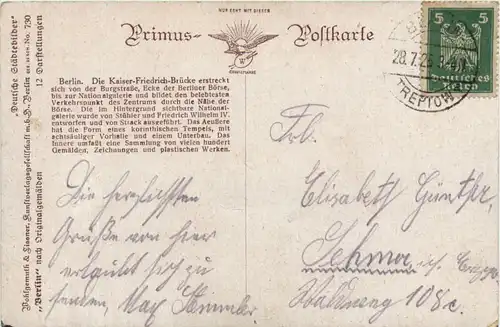 NUR ECHT MIT DIESER
Primus-Postkarte
Berlin. Die Kaiser-Friedrich-Brücke erstreckt
sich von der Burgstraße, Ecke der Berliner Börse,
bis zur Nationalgalerie und bildet den belebtesten
Verkehrspunkt des Zentrums durch die Nähe der
Börse. Die im Hintergrund sichtbare National-
galerie wurde von Stühler und Friedrich Wilhelm IV.
entworfen und von Strack ausgeführt. Das Aeußere
hat die Form eines korinthischen Tempels, mit
achtsäuliger Vorhalle und einem Unterbau. Das
Innere umfaßt eine Sammlung von vielen hundert
Gemälden, Zeichnungen und plastischen Werken.
Die herzlichsten
Grüße von hier
erlaubt sich zu
senden, Max
"Deutsche Städtebilder"
Kunstverlagsgesellschaft m.b.H. Berlin No. 730
"Berlin" nach Originalgemälden 12 Darstellungen
5 5
Deutsches
Reich
TREPTOW
Elisabeth Günther,
108c.